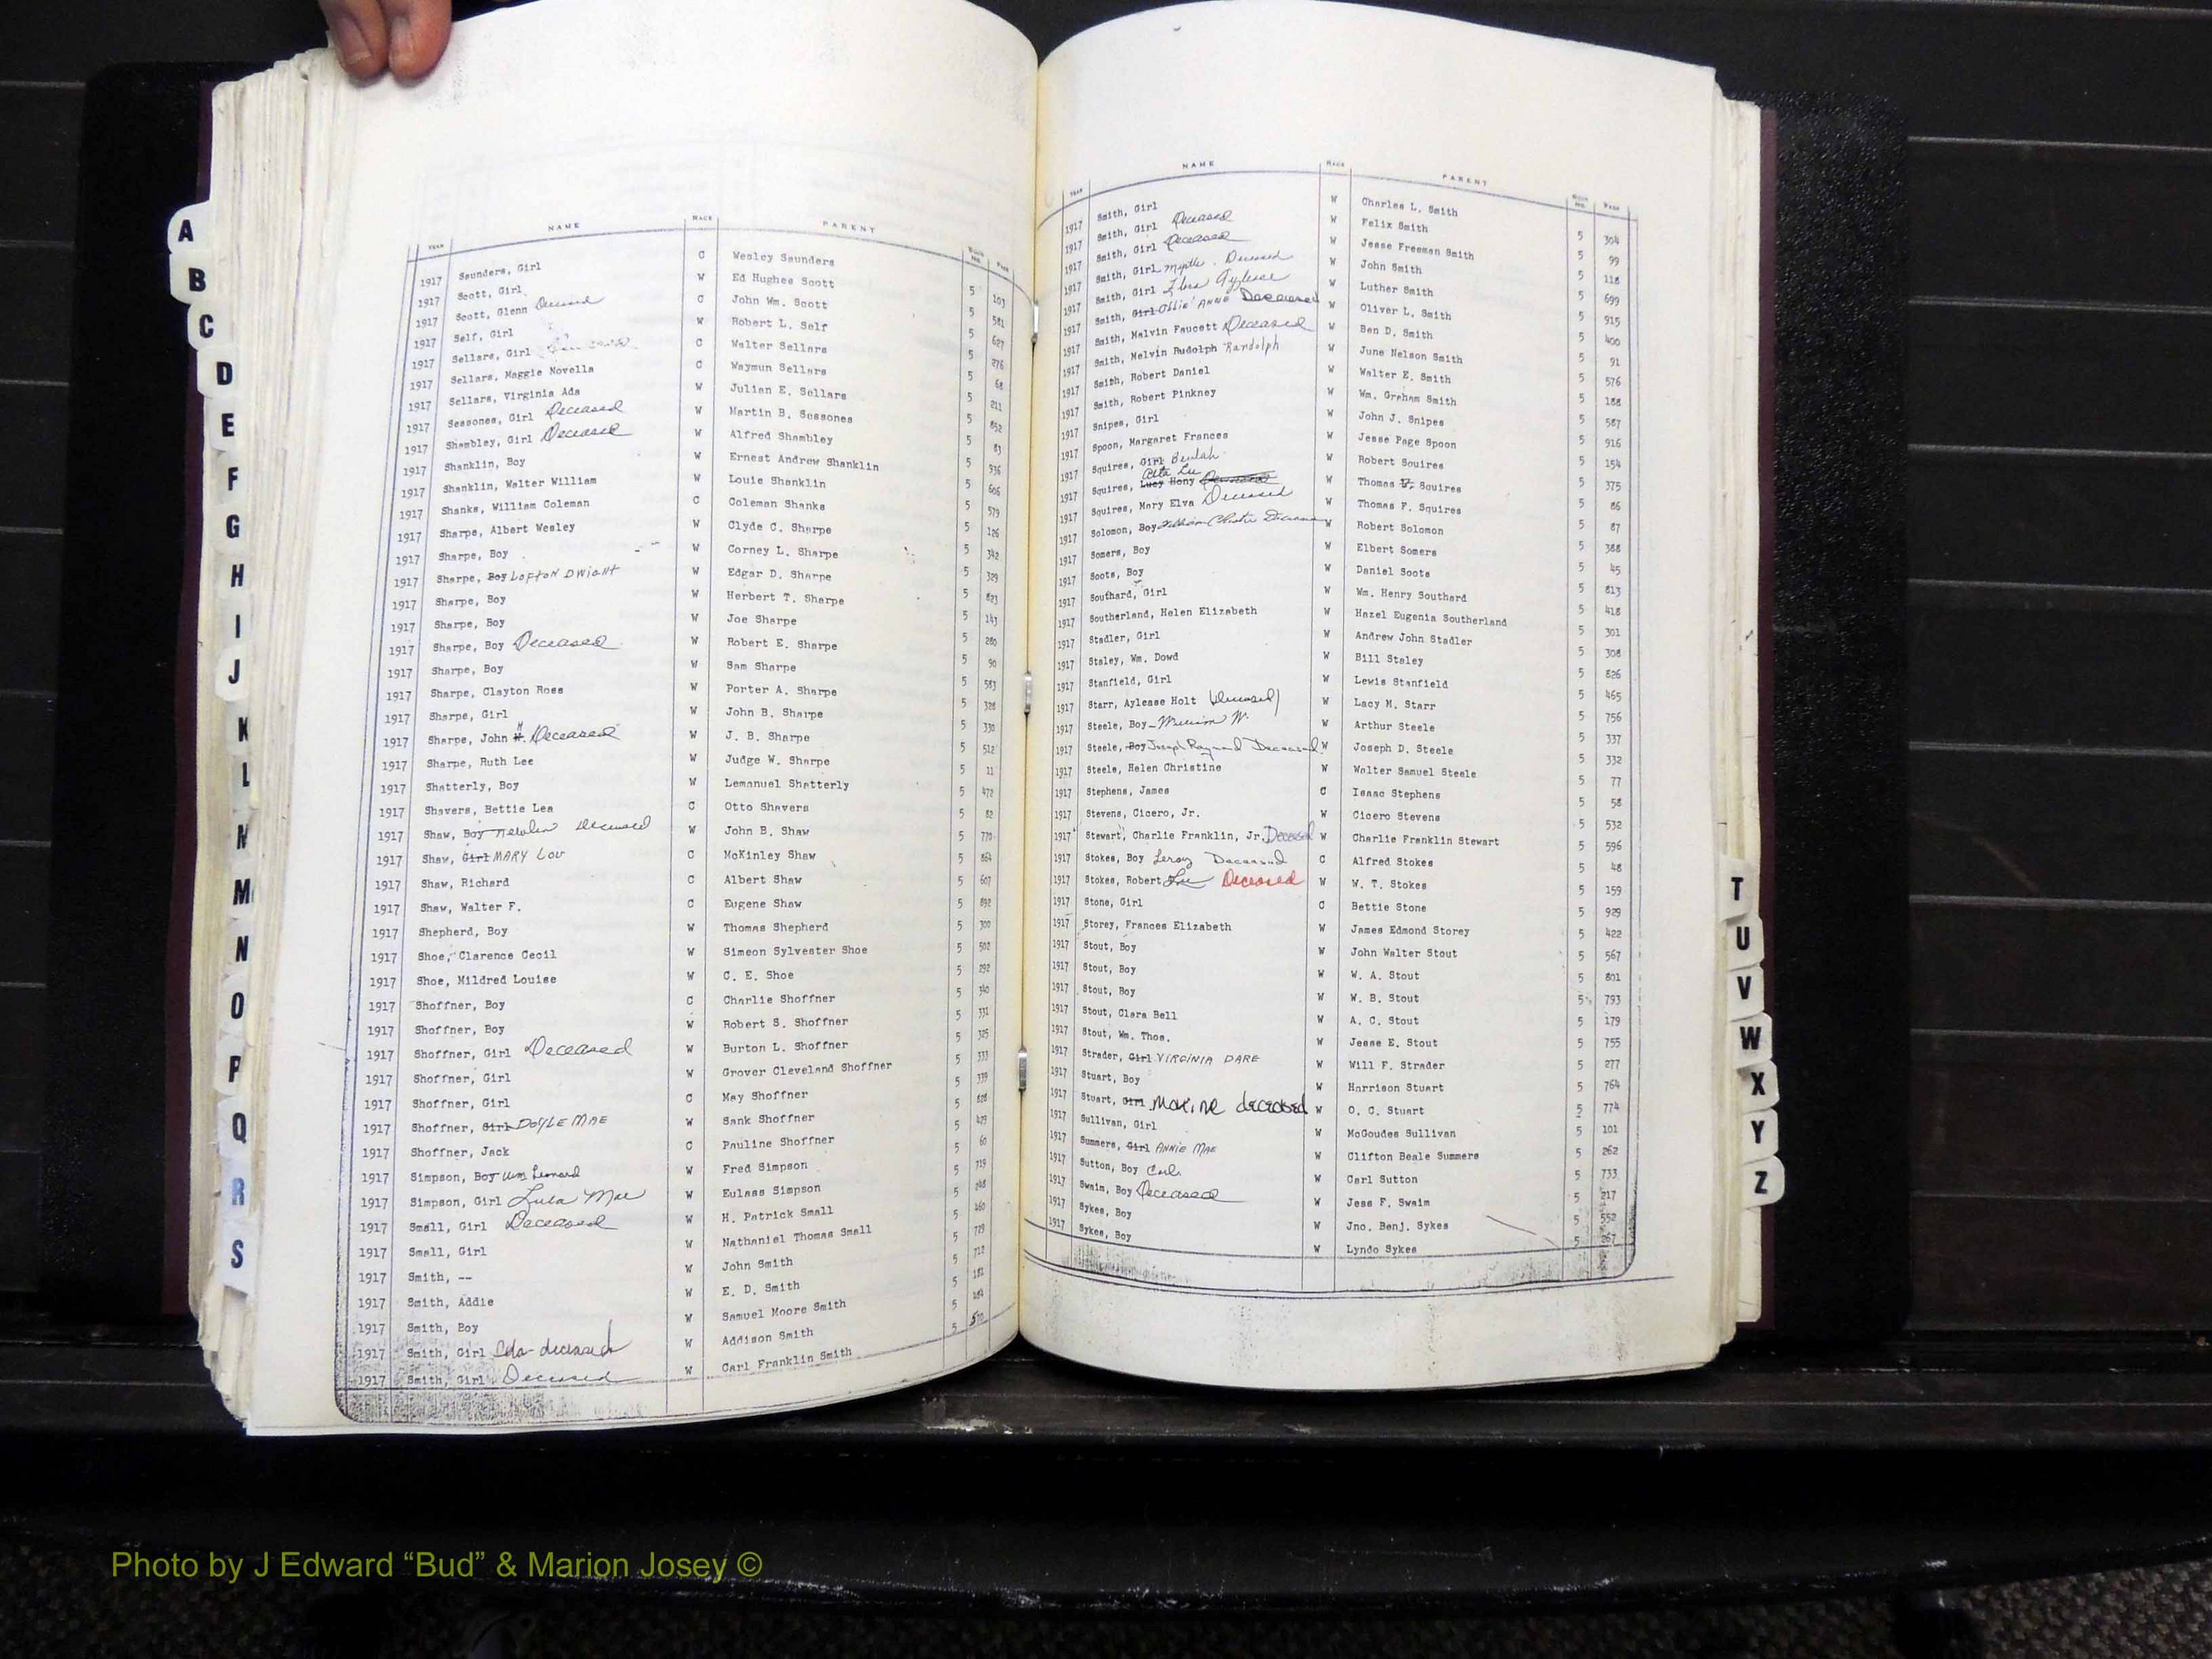 A
B
C
D
E
F
G
H
I
J
K
L
M
N
O
P
Q
R
S
YEAR NAME RACE PARENT BOOK NO. PAGE
1917 Saunders, Girl C Wesley Saunders 5 103
1917 Scott, Girl W Ed Hughes Scott 5 581
1917 Scott, Glenn Deceased C John Wm. Scott 5 627
1917 Self, Girl W Robert L. Self 5 276
1917 Sellars, Girl C Walter Sellars 5 68
1917 Sellars, Maggie Novella C Waymun Sellars 5 211
1917 Sellars, Virginia Ada W Julian E. Sellars 5 852
1917 Sessoms, Girl Deceased W Martin B. Sessoms 5 83
1917 Shambley, Girl Deceased W Alfred Shambley 5 936
1917 Shanklin, Boy W Ernest Andrew Shanklin 5 606
1917 Shanklin, Walter William W Louie Shanklin 5 579
1917 Shanks, William Coleman C Coleman Shanks 5 126
1917 Sharpe, Albert Wesley W Clyde C. Sharpe 5 342
1917 Sharpe, Boy W Corney L. Sharpe 5 329
1917 Sharpe, Boy LOFTON DWIGHT W Edgar D. Sharpe 5 823
1917 Sharpe, Boy W Herbert T. Sharpe 5 143
1917 Sharpe, Boy W Joe Sharpe 5 280
1917 Sharpe, Boy Deceased W Robert E. Sharpe 5 90
1917 Sharpe, Boy W Sam Sharpe 5 583
1917 Sharpe, Clayton Ross W Porter A. Sharpe 5 328
1917 Sharpe, Girl W John B. Sharpe 5 330
1917 Sharpe, John H. Deceased W J. B. Sharpe 5 512
1917 Sharpe, Ruth Lee W Judge W. Sharpe 5 11
1917 Shatterly, Boy W Lemanuel Shatterly 5 472
1917 Shavers, Bettie Lea C Otto Shavers 5 82
1917 Shaw, Boy Newlin Deceased W John B. Shaw 5 770
1917 Shaw, Girl MARY LOU C McKinley Shaw 5 864
1917 Shaw, Richard C Albert Shaw 5 607
1917 Shaw, Walter F. C Eugene Shaw 5 892
1917 Shepherd, Boy W Thomas Shepherd 5 300
1917 Shoe, Clarence Cecil W Simeon Sylvester Shoe 5 502
1917 Shoe, Mildred Louise W C. E. Shoe 5 292
1917 Shoffner, Boy C Charlie Shoffner 5 340
1917 Shoffner, Boy W Robert S. Shoffner 5 331
1917 Shoffner, Girl Deceased W Burton L. Shoffner 5 325
1917 Shoffner, Girl W Grover Cleveland Shoffner 5 333
1917 Shoffner, Girl C May Shoffner 5 339
1917 Shoffner, Girl DOYLE MAE W Sank Shoffner 5 828
1917 Shoffner, Jack C Pauline Shoffner 5 429
1917 Simpson, Boy Wm Leonard W Fred Simpson 5 60
1917 Simpson, Girl Lula Mae W Eulass Simpson 5 719
1917 Small, Girl Deceased W H. Patrick Small 5 248
1917 Small, Girl W Nathaniel Thomas Small 5 460
1917 Smith, -- W John Smith 5 729
1917 Smith, Addie W E. D. Smith 5 712
1917 Smith, Boy W Samuel Moore Smith 5 181
1917 Smith, Girl Ida-deceased W Addison Smith 5 184
1917 Smith, Girl Deceased W Carl Franklin Smith 5
YEAR NAME RACE PARENT BOOK NO. PAGE
1917 Smith, Girl W Charles L. Smith 5 304
1917 Smith, Girl Deceased W Felix Smith 5 99
1917 Smith, Girl Deceased W Jesse Freeman Smith 5 118
1917 Smith, Girl Myrtle Deceased W John Smith 5 699
1917 Smith, Girl Flora W Luther Smith 5 915
1917 Smith, Girl Ollie ANNE Deceased W Oliver L. Smith 5 400
1917 Smith, Malvin Faucett Deceased W Ben D. Smith 5 91
1917 Smith, Melvin Rudolph Randolph W June Nelson Smith 5 576
1917 Smith, Robert Daniel W Walter E. Smith 5 188
1917 Smith, Robert Pinkney W Wm. Graham Smith 5 587
1917 Snipes, Girl W John J. Snipes 5 916
1917 Spoon, Margaret Frances W Jesse Page Spoon 5 154
1917 Squires, Girl Beulah W Robert Squires 5 375
1917 Squires, Lucy Hony W Thomas F. Squires 5 86
1917 Squires, Mary Elva Deceased W Thomas F. Squires 5 87
1917 Solomon, Boy W Robert Solomon 5 388
1917 Somers, Boy W Elbert Somers 5 45
1917 Soots, Boy W Daniel Soots 5 813
1917 Southard, Girl W Wm. Henry Southard 5 418
1917 Southerland, Helen Elizabeth W Hazel Eugenia Southerland 5 301
1917 Stadler, Girl W Andrew John Stadler 5 308
1917 Staley, Wm. Dowd W Bill Staley 5 826
1917 Stanfield, Girl W Lewis Stanfield 5 465
1917 Starr, Aylease Holt (deceased) W Lacy M. Starr 5 756
1917 Steele, Boy W. W Arthur Steele 5 337
1917 Steele, Boy Joseph Raymond Deceased W Joseph D. Steele 5 332
1917 Steele, Helen Christine W Walter Samuel Steele 5 77
1917 Stephens, James C Isaac Stephens 5 58
1917 Stevens, Cicero, Jr. W Cicero Stevens 5 532
1917 Stewart, Charlie Franklin, Jr. Deceased W Charlie Franklin Stewart 5 596
1917 Stokes, Boy Leroy Deceased C Alfred Stokes 5 48
1917 Stokes, Robert Lee Deceased W W. T. Stokes 5 159
1917 Stone, Girl C Bettie Stone 5 929
1917 Storey, Frances Elizabeth W James Edmond Storey 5 422
1917 Stout, Boy W John Walter Stout 5 567
1917 Stout, Boy W W. A. Stout 5 801
1917 Stout, Boy W W. B. Stout 5 793
1917 Stout, Clara Bell W A. C. Stout 5 179
1917 Stout, Wm. Thos. W Jesse E. Stout 5 755
1917 Strader, Girl VIRGINIA DARE W Will F. Strader 5 277
1917 Stuart, Boy W Harrison Stuart 5 764
1917 Stuart, Girl Maxine deceased W O. C. Stuart 5 774
1917 Sullivan, Girl W McGoudes Sullivan 5 101
1917 Summers, Girl ANNIE MAE W Clifton Beale Summers 5 262
1917 Sutton, Boy Carl W Carl Sutton 5 733
1917 Swaim, Boy Deceased W Jess F. Swaim 5 217
1917 Sykes, Boy W Jno. Benj. Sykes 5 552
1917 Sykes, Boy W Lyndo Sykes 5 267
T
U
V
W
X
Y
Z
Photo by J Edward “Bud” & Marion Josey ©